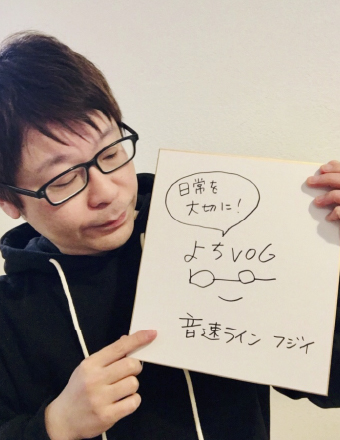 日常を
大切に!
よちVOG
音速ライン フジイ